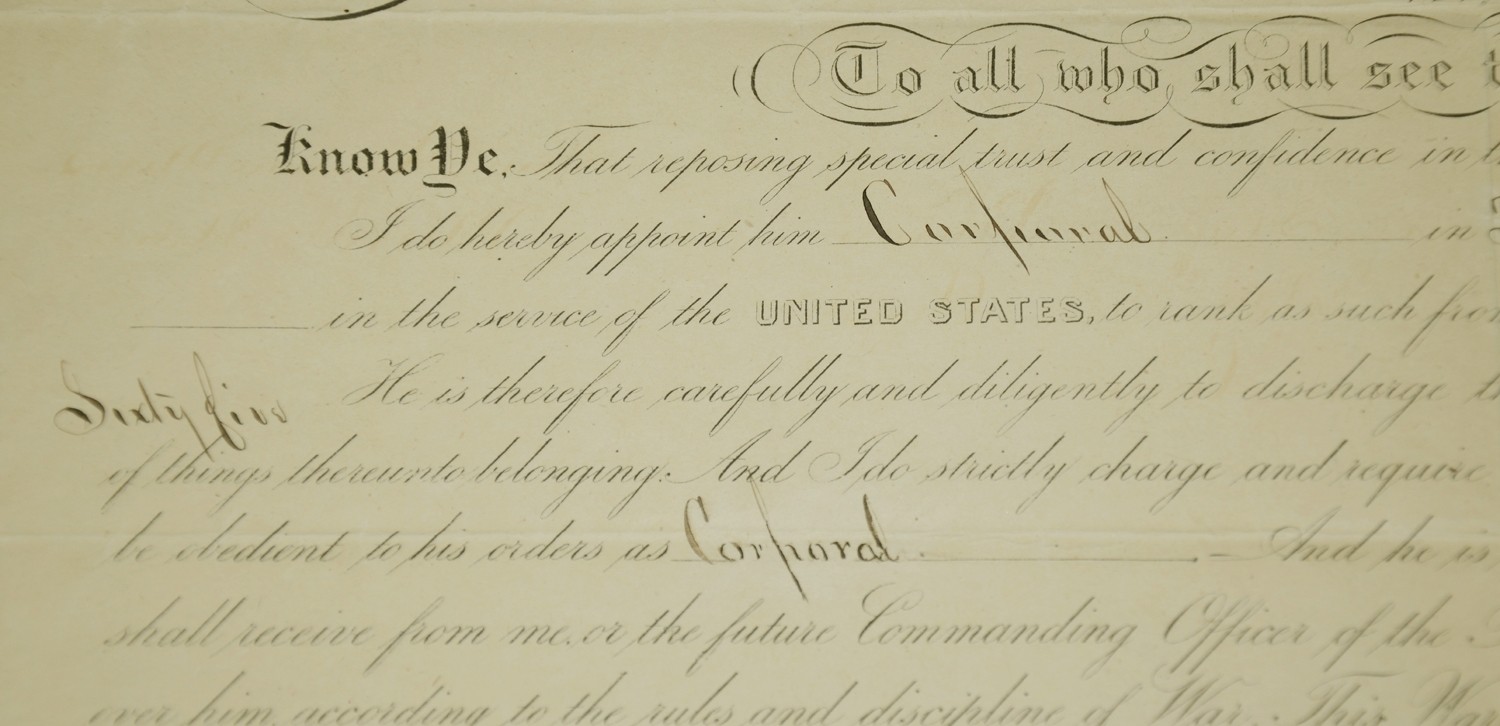 To all who shall see
Know Ye, That reposing special trust and confidence in
I do hereby appoint him Corporal in
in the service of the UNITED STATES, to rank as such from
Sixty five He is therefore carefully and diligently to discharge
of things thereunto belonging. And I do strictly charge and require
be obedient to his orders as Corporal - And he is
shall receive from me, or the future Commanding Officer of the
over him, according to the rules and discipline of War. This